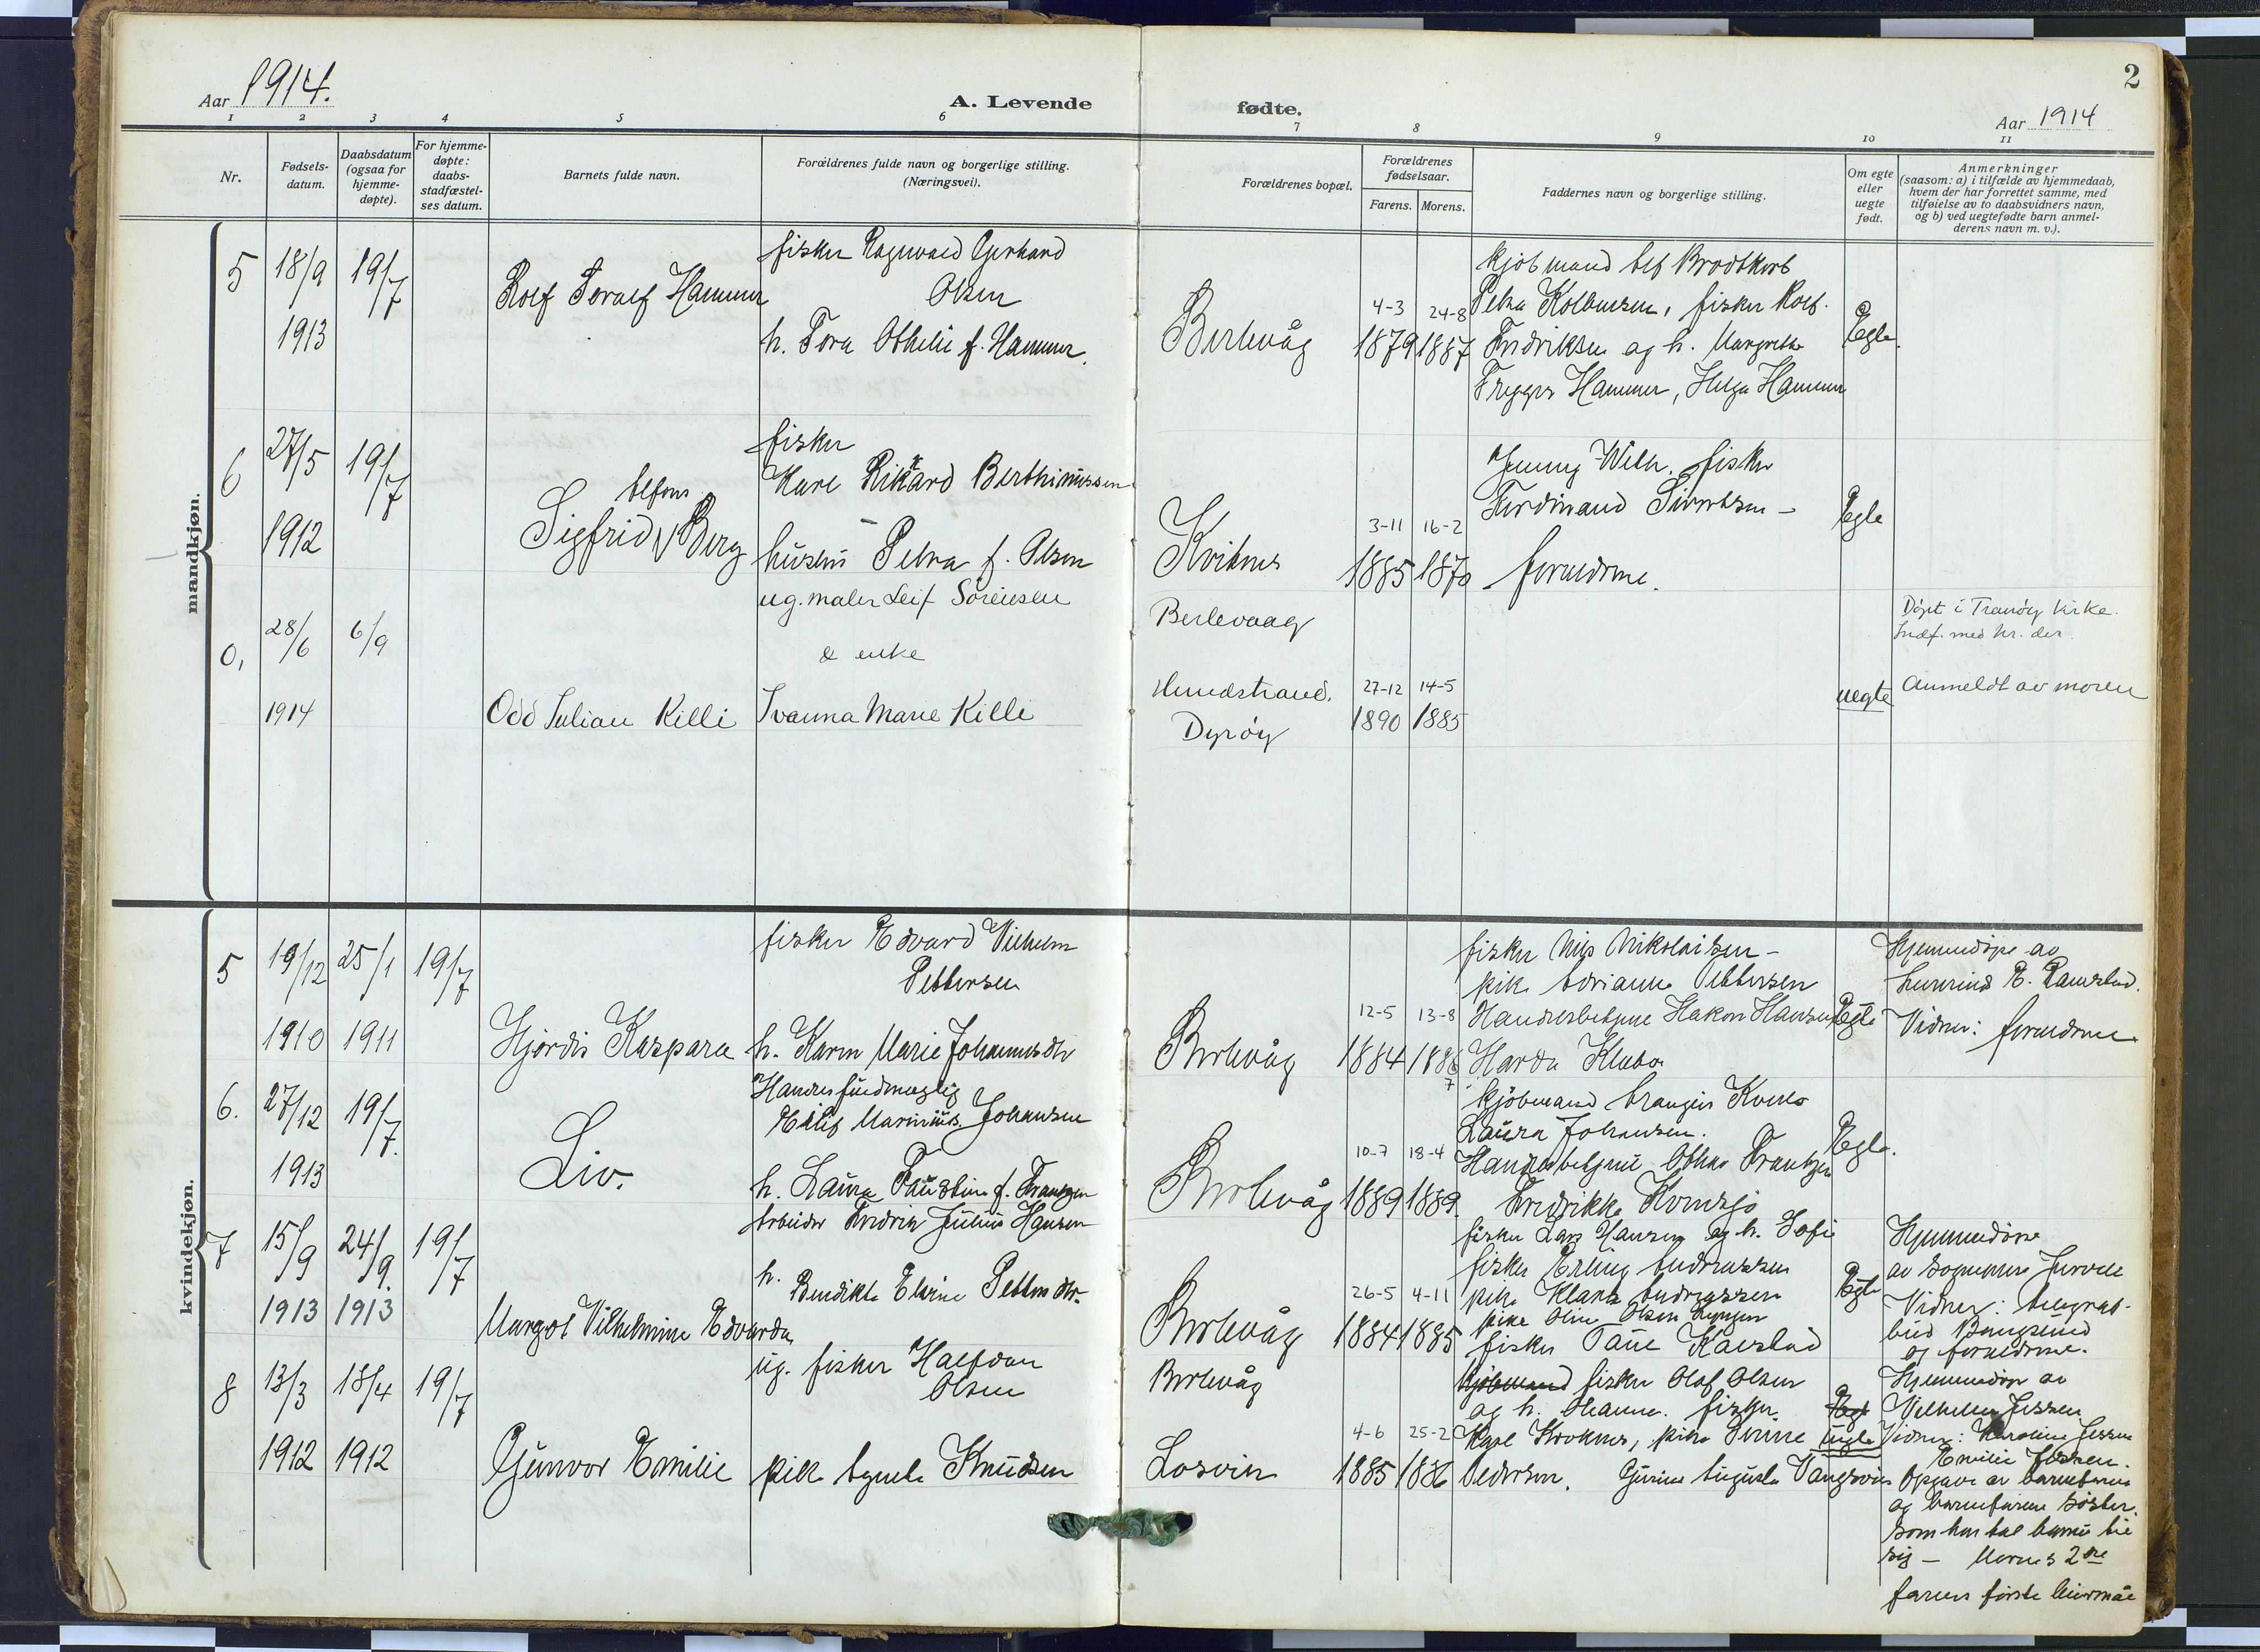 Aar 1914.
A. Levende
fødte.
Aar 1914
2
1 2 3 4 5 6 7 8 9 10 11
Nr.
Fødsels-
datum.
Daabsdatum
(ogsaa for
hjemme-
døpte).
For hjemme-
døpte:
daabs-
stadfæstel-
ses datum.
Barnets fulde navn.
Forældrenes fulde navn og borgerlige stilling.
(Næringsvei).
Forældrenes bopæl.
Forældrenes
fødselsaar.
Farens. Morens.
Faddernes navn og borgerlige stilling.
Om egte
eller
uegte
født.
Anmerkninger
(saasom: a) i tilfælde av hjemmedaab,
hvem der har forrettet samme, med
tilføielse av to daabsvidners navn,
og b) ved uegtefødte barn anmel-
derens navn m. v.).
mandkjøn.
5
18/9
1913
19/7
Rolf Toralf Hammer
fisker Ragnvald Gerhard
Olsen
h. Tora Othelie f. Hammer.
Berlevåg
4-3
1879
24-8
1887
kjøbmand Brodtkorb
Petra fisker Rolf
Fredriksen og h. Margrethe
Trygve Hammer, Helga Hammer
Egte.
6
27/5
1912
19/7
Sigfrid Berg
fisker
Karl Rikard Berthiniussen
hustru Petra f. Olsen
Kvitnes
3-11
1885
16-2
1870
Jenny Wilh. fisker
Ferdinand Sivertsen -
forældrene.
Egte
0,
28/6
1914
6/9
Odd Julian Killi
ug. maler Leif Sörensen
& enke
Ivanna Marie Killi
Berlevaag
Dyröy
27-12
1890
14-5
1885
uegte
Döpt i Tranöy kirke.
Indf. med nr. der.
Anmeldt av moren
kvindekjøn.
5
19/12
1910
25/1
1911
19/7
Hjördis Kaspara
fisker Edvard Vilhelm
Pettersen
h. Karen Marie Johannesdtr
Berlevåg
12-5
1884
13-8
1886
7
fisker Nils Nikolaisen -
pike Adriane Pettersen
Handelsbetjene Hakon Hansen
Egte
Hjemmedöpt av
Lærerinde E. Ramstad.
Vidner: forældrene
6.
27/12
1913
19/7.
Liv.
Handelsfuldmægtig
Eilif Marinius Johansen
h. Laura Faustine f. Frantzen
Berlevåg
10-7
1889
18-4
1889.
kjöbmand
Laura Johansen.
Handelsbetjent Othar Frantzen
Fredrikke
Egte.
7
15/9
1913
24/9.
1913
19/7
Margot Vilhelmine Edvarda
Arbeider Fredrik Julius Hansen
h.
Bendikte Elvine Pettersdtr.
Berlevåg
26-5
1884
4-11
1885
fisker Lars Hansen og h. Sofie
fisker Erling Andreassen
pike Klara Andreassen
pike Oline Olsen Lyngen
fisker Paul Kaarstad
Egte
Hjemmedöpt
av
Vidner: telegraf-
bud
og forældrene.
8
13/3
1912
18/4
1912
19/7
Gunvor Emilie
ug. fisker Halfdan
Olsen
pike Agnete Knudsen
Berlevåg
Losvik
4-6
1885
25-2
1886
Kjöbmand fisker Olaf Olsen
og h. Hanna. fisker
Karl Kroknes, pike
Pedersen. Gurine Augusta Vangsvik
Egt
uegte
Hjemmedöpt av
Vilhelm Jessen
Vidner: Karoline Jessen
Emilie Jessen.
Opgave av barnefaren
og barnefarens söster,
som har tat barnet til
sig - Morens 2det
farens förste leiermål